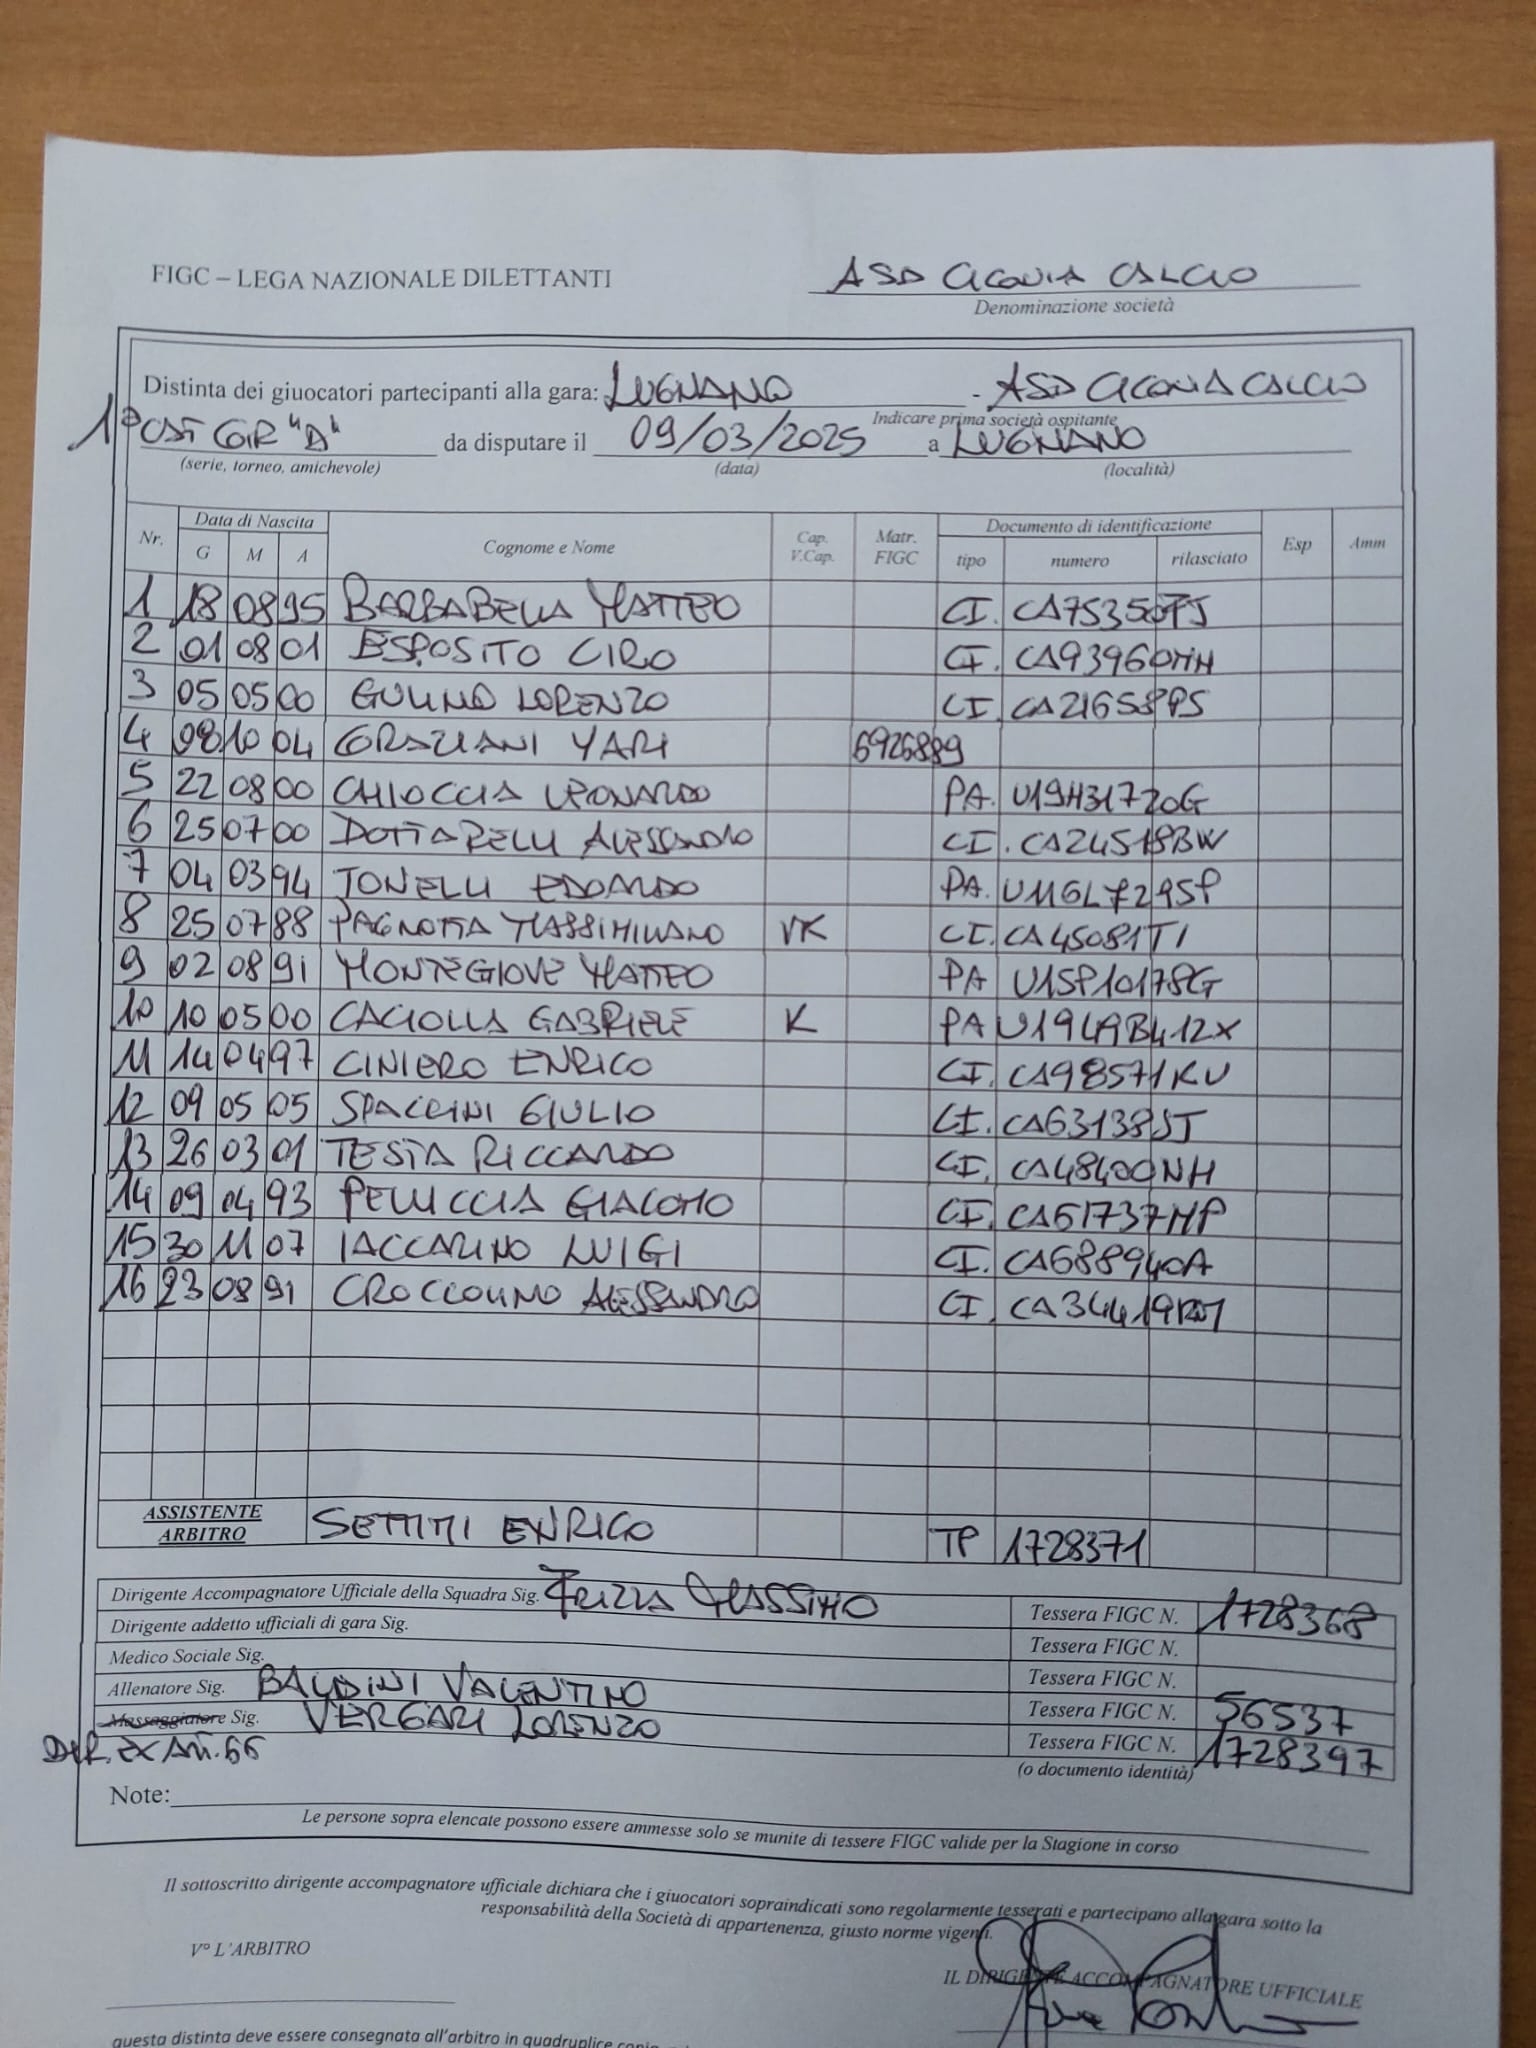 FIGC – LEGA NAZIONALE DILETTANTI ASD CICONIA CALCIO
Denominazione società
Distinta dei giuocatori partecipanti alla gara: LUGNANO - ASD CICONIA CALCIO
Indicare prima società ospitante
1ª CAT GIR "D" da disputare il 09/03/2025 a LUGNANO
(serie, torneo, amichevole) (data) (località)
Nr. Data di Nascita Cognome e Nome Cap. V.Cap. Matr. FIGC Documento di identificazione Esp Amm
G M A tipo numero rilasciato
1 18 08 95 BARBABELLA MATTEO CI. CA75350PJ
2 01 08 01 ESPOSITO CIRO CI. CA93960MH
3 05 05 00 GULINO LORENZO CI. CA21658PS
4 08 10 04 GRAZIANI YARI 6926889
5 22 08 00 CHIOCCIA LEONARDO PA. U19H31720G
6 25 07 00 DOTTARELLI ALESSANDRO CI. CA24518BW
7 04 03 94 TONELLI EDOARDO PA. U116L7295P
8 25 07 88 PAGNOTTA MASSIMILIANO VK CI. CA45081TI
9 02 08 91 MONTEGIOVE MATTEO PA U15P10178G
10 10 05 00 CACIOLLA GABRIELE K PA U1949B412X
11 14 04 97 CINIERO ENRICO CI. CA98571KU
12 09 05 05 SPACCINI GIULIO CI. CA63138ST
13 26 03 01 TESTA RICCARDO CI. CA48400NH
14 09 04 93 PELUCCIA GIACOMO CI. CA61737MP
15 30 11 07 IACCARINO LUIGI CI. CA68894OA
16 23 08 91 CROCCOLINO ALESSANDRO CI.
ASSISTENTE ARBITRO SETTIMI ENRICO TP 1728371
Dirigente Accompagnatore Ufficiale della Squadra Sig. FRIZZA MASSIMO Tessera FIGC N. 1728368
Dirigente addetto ufficiali di gara Sig. Tessera FIGC N.
Medico Sociale Sig. Tessera FIGC N.
Allenatore Sig. BALDINI VALENTINO Tessera FIGC N. 56537
Massaggiatore Sig. VERGARI LORENZO Tessera FIGC N. 1728397
DIR. EX ART. 66 (o documento identità)
Note:
Le persone sopra elencate possono essere ammesse solo se munite di tessere FIGC valide per la Stagione in corso
Il sottoscritto dirigente accompagnatore ufficiale dichiara che i giuocatori sopraindicati sono regolarmente tesserati e partecipano alla gara sotto la
responsabilità della Società di appartenenza, giusto norme vigenti.
V° L'ARBITRO IL DIRIGENTE ACCOMPAGNATORE UFFICIALE
questa distinta deve essere consegnata all'arbitro in quadruplice copia